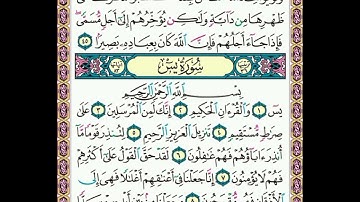 ظَهْرِهَا مِن دَآبَّةٍ وَلَٰكِن يُؤَخِّرُهُمْ إِلَىٰٓ أَجَلٍ مُّسَمًّى
فَإِذَا جَآءَ أَجَلُهُمْ فَإِنَّ ٱللَّهَ كَانَ بِعِبَادِهِۦ بَصِيرًۢا ٤٥
سُورَةُ يسٓ
بِسْمِ ٱللَّهِ ٱلرَّحْمَٰنِ ٱلرَّحِيمِ
يسٓ ١ وَٱلْقُرْءَانِ ٱلْحَكِيمِ ٢ إِنَّكَ لَمِنَ ٱلْمُرْسَلِينَ ٣ عَلَىٰ
صِرَٰطٍ مُّسْتَقِيمٍ ٤ تَنزِيلَ ٱلْعَزِيزِ ٱلرَّحِيمِ ٥ لِتُنذِرَ قَوْمًا مَّآ
أُنذِرَ ءَابَآؤُهُمْ فَهُمْ غَٰفِلُونَ ٦ لَقَدْ حَقَّ ٱلْقَوْلُ عَلَىٰٓ أَكْثَرِهِمْ
فَهُمْ لَا يُؤْمِنُونَ ٧ إِنَّا جَعَلْنَا فِىٓ أَعْنَٰقِهِمْ أَغْلَٰلًا فَهِىَ إِلَى